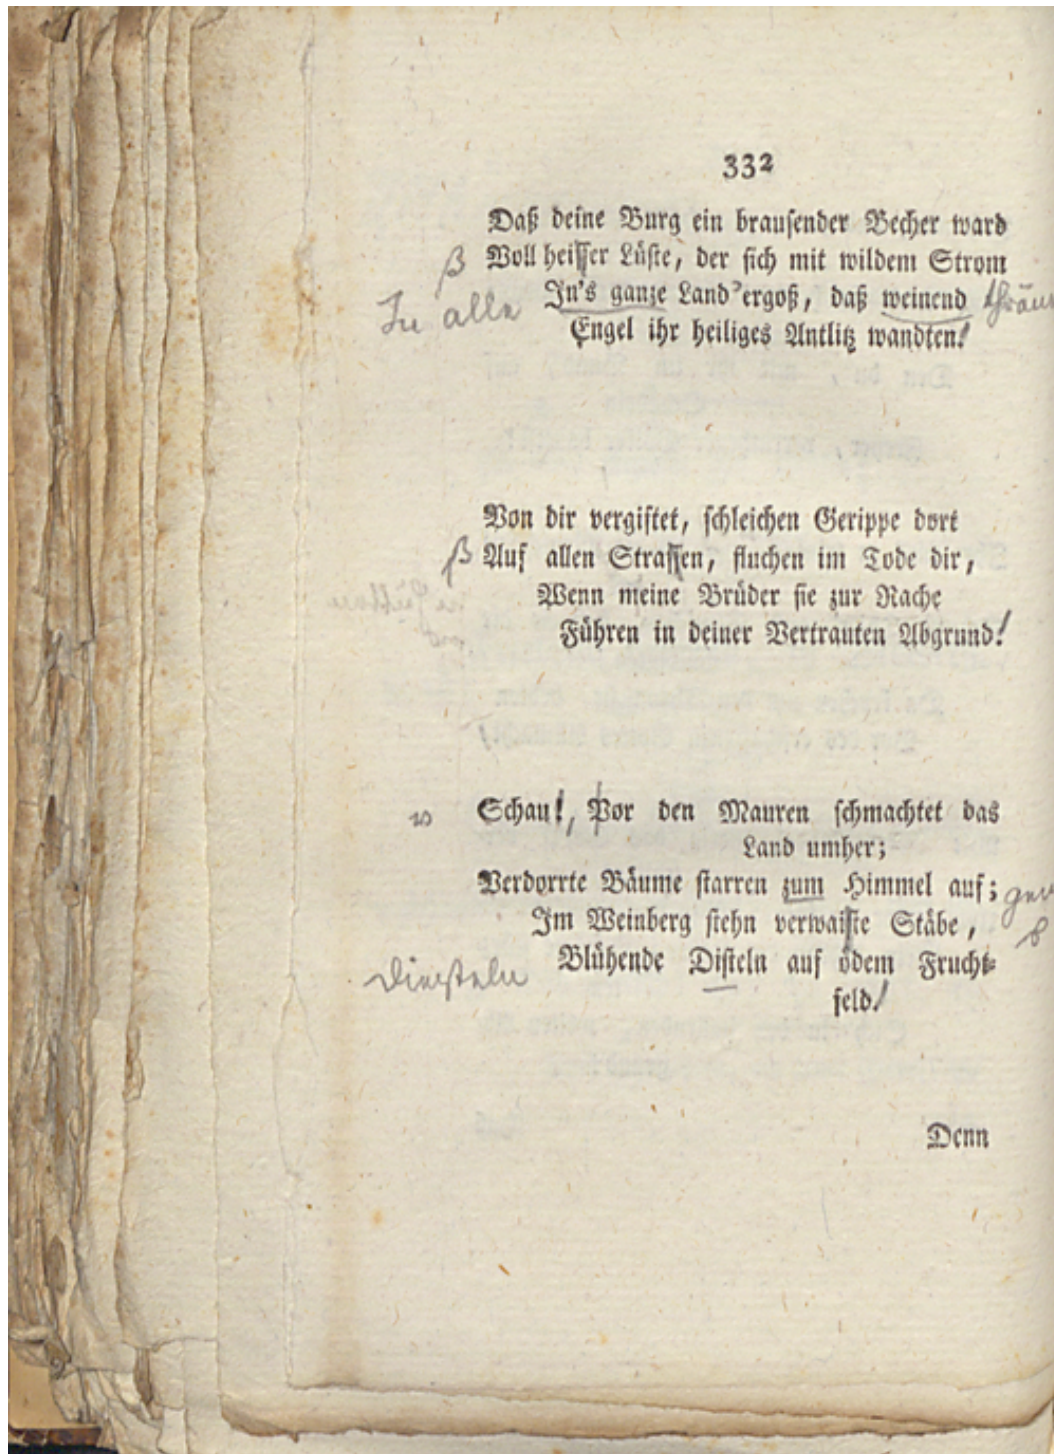 332
Daß deine Burg ein brausender Becher ward
ß Voll heisser Lüste, der sich mit wildem Strom
In alle In's ganze Land ergoß, daß weinend thrän
Engel ihr heiliges Antlitz wandten!
Von dir vergiftet, schleichen Gerippe dort
ß Auf allen Strassen, fluchen im Tode dir,
Wenn meine Brüder sie zur Rache
Führen in deiner Vertrauten Abgrund!
v Schau!, Vor den Mauren schmachtet das
Land umher;
Verdorrte Bäume starren zum Himmel auf; gen
Im Weinberg stehn verwaiste Stäbe, s
Diesteln Blühende Disteln auf ödem Frucht-
feld!
Denn